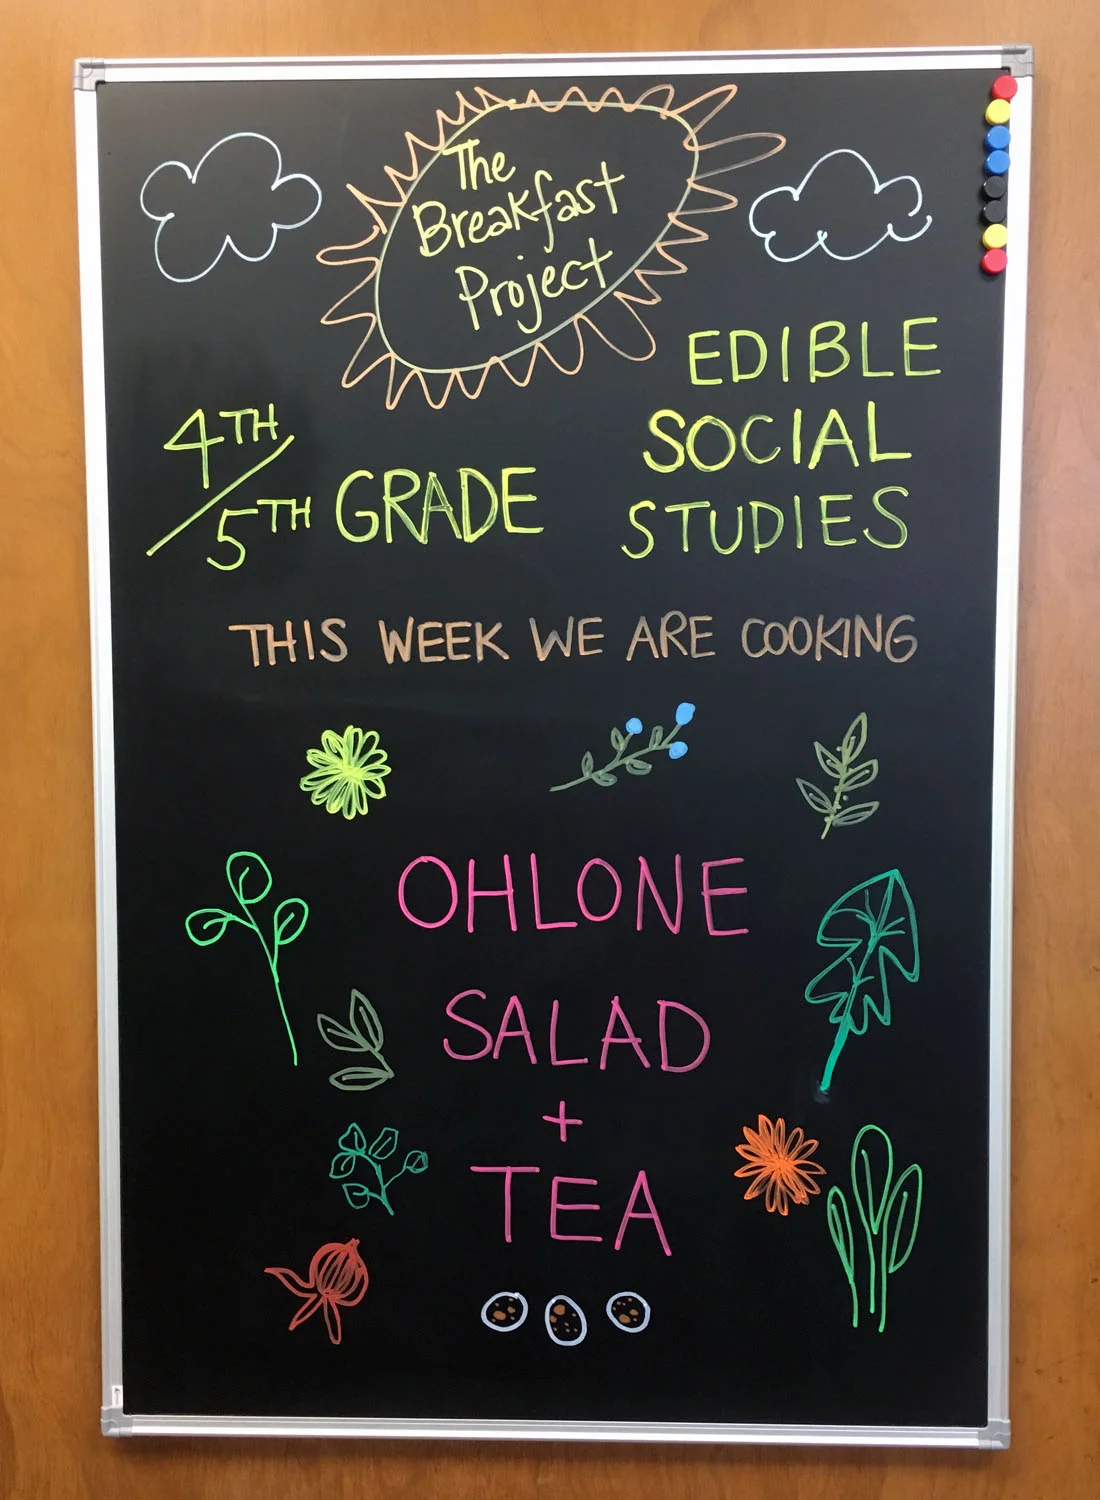 The
Breakfast
Project
EDIBLE
SOCIAL
STUDIES
4TH/5TH GRADE
THIS WEEK WE ARE COOKING
OHLONE
SALAD
+
TEA